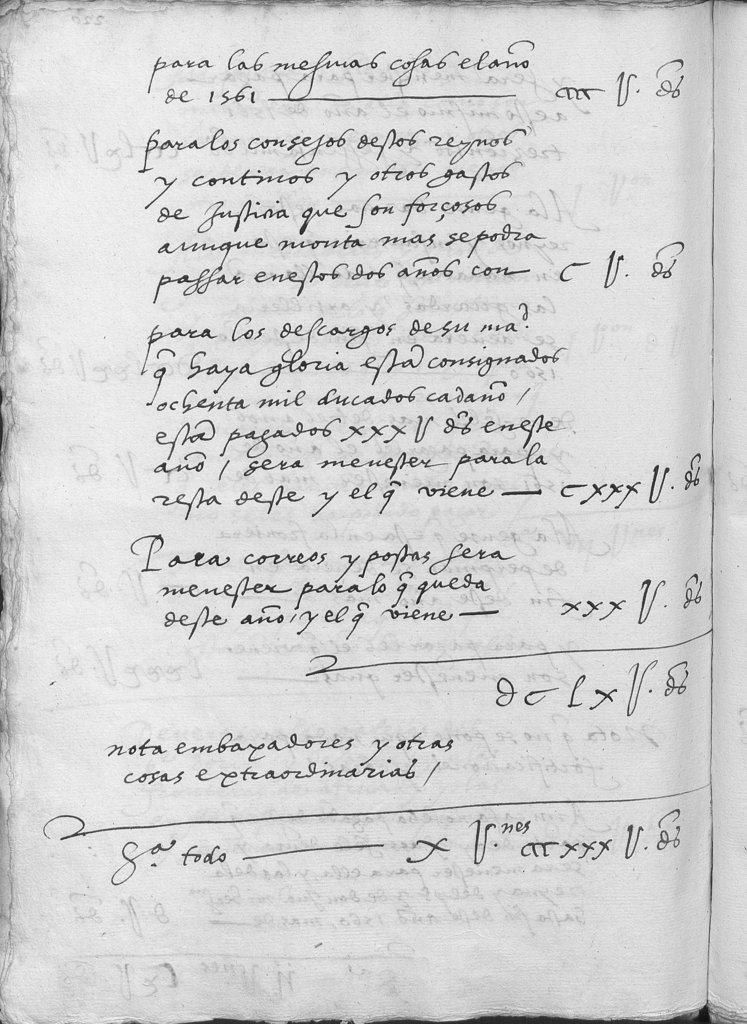 para las mesmas cosas el año
de 1561 ccc U. ds
para los consejos destos reynos
y continos y otros gastos
de Justicia que son forçosos
aunque monta mas, se podra
passar en estos dos años con c U. ds
para los descargos de su mad.
q haya gloria estan consignados
ochenta mil ducados cada año /
estan pagados xxx U ds en este
año / sera menester para la
resta deste y el q viene c xxx U. ds
Para correos y postas sera
menester para lo q queda
deste año, y el q viene xxx U. ds
d c l x U. ds
nota embaxadores y otras
cosas extraordinarias /
Sa. todo x U.nes ccc xxx U. ds